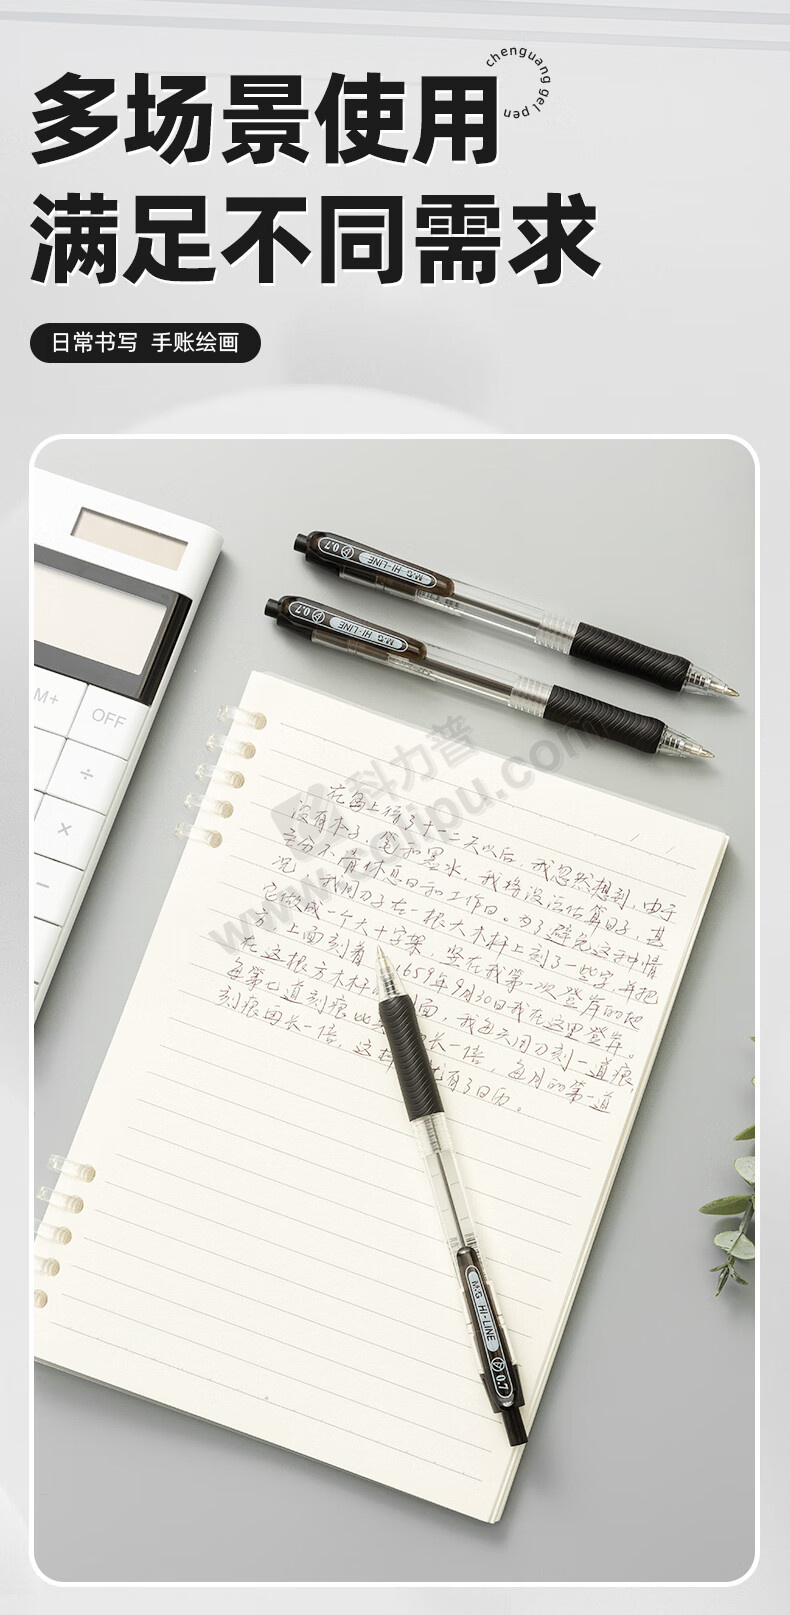 chenguang gel pen
多场景使用
满足不同需求
日常书写 手账绘画
M&G HI-LINE 0.7
M&G HI-LINE 0.7
M+
OFF
÷
×
−
科力普
www.colipu.com
在岛上待了十一二天以后，我忽然想到，由于
没有本子、笔和墨水，我将没法估算日子，甚
至分不清休息日和工作日。为了避免这种情
况，我用刀子在一根大木杆上刻了一些字，并把
它做成一个大十字架，竖在我第一次登岸的地
方，上面刻着 1659年9月30日我在这里登岸。
在这根方木杆的 面，我每天用刀刻一道痕，
每第七道刻痕比 长一倍，每月的第一道
刻痕再长一倍，这样 有了日历。
M&G HI-LINE 0.7